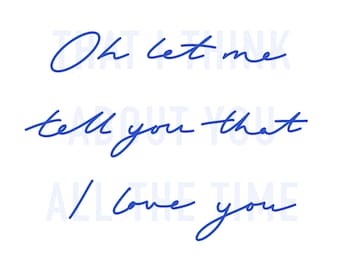 THAT I THINK
Oh let me
ABOUT YOU
tell you that
ALL THE TIME
I love you